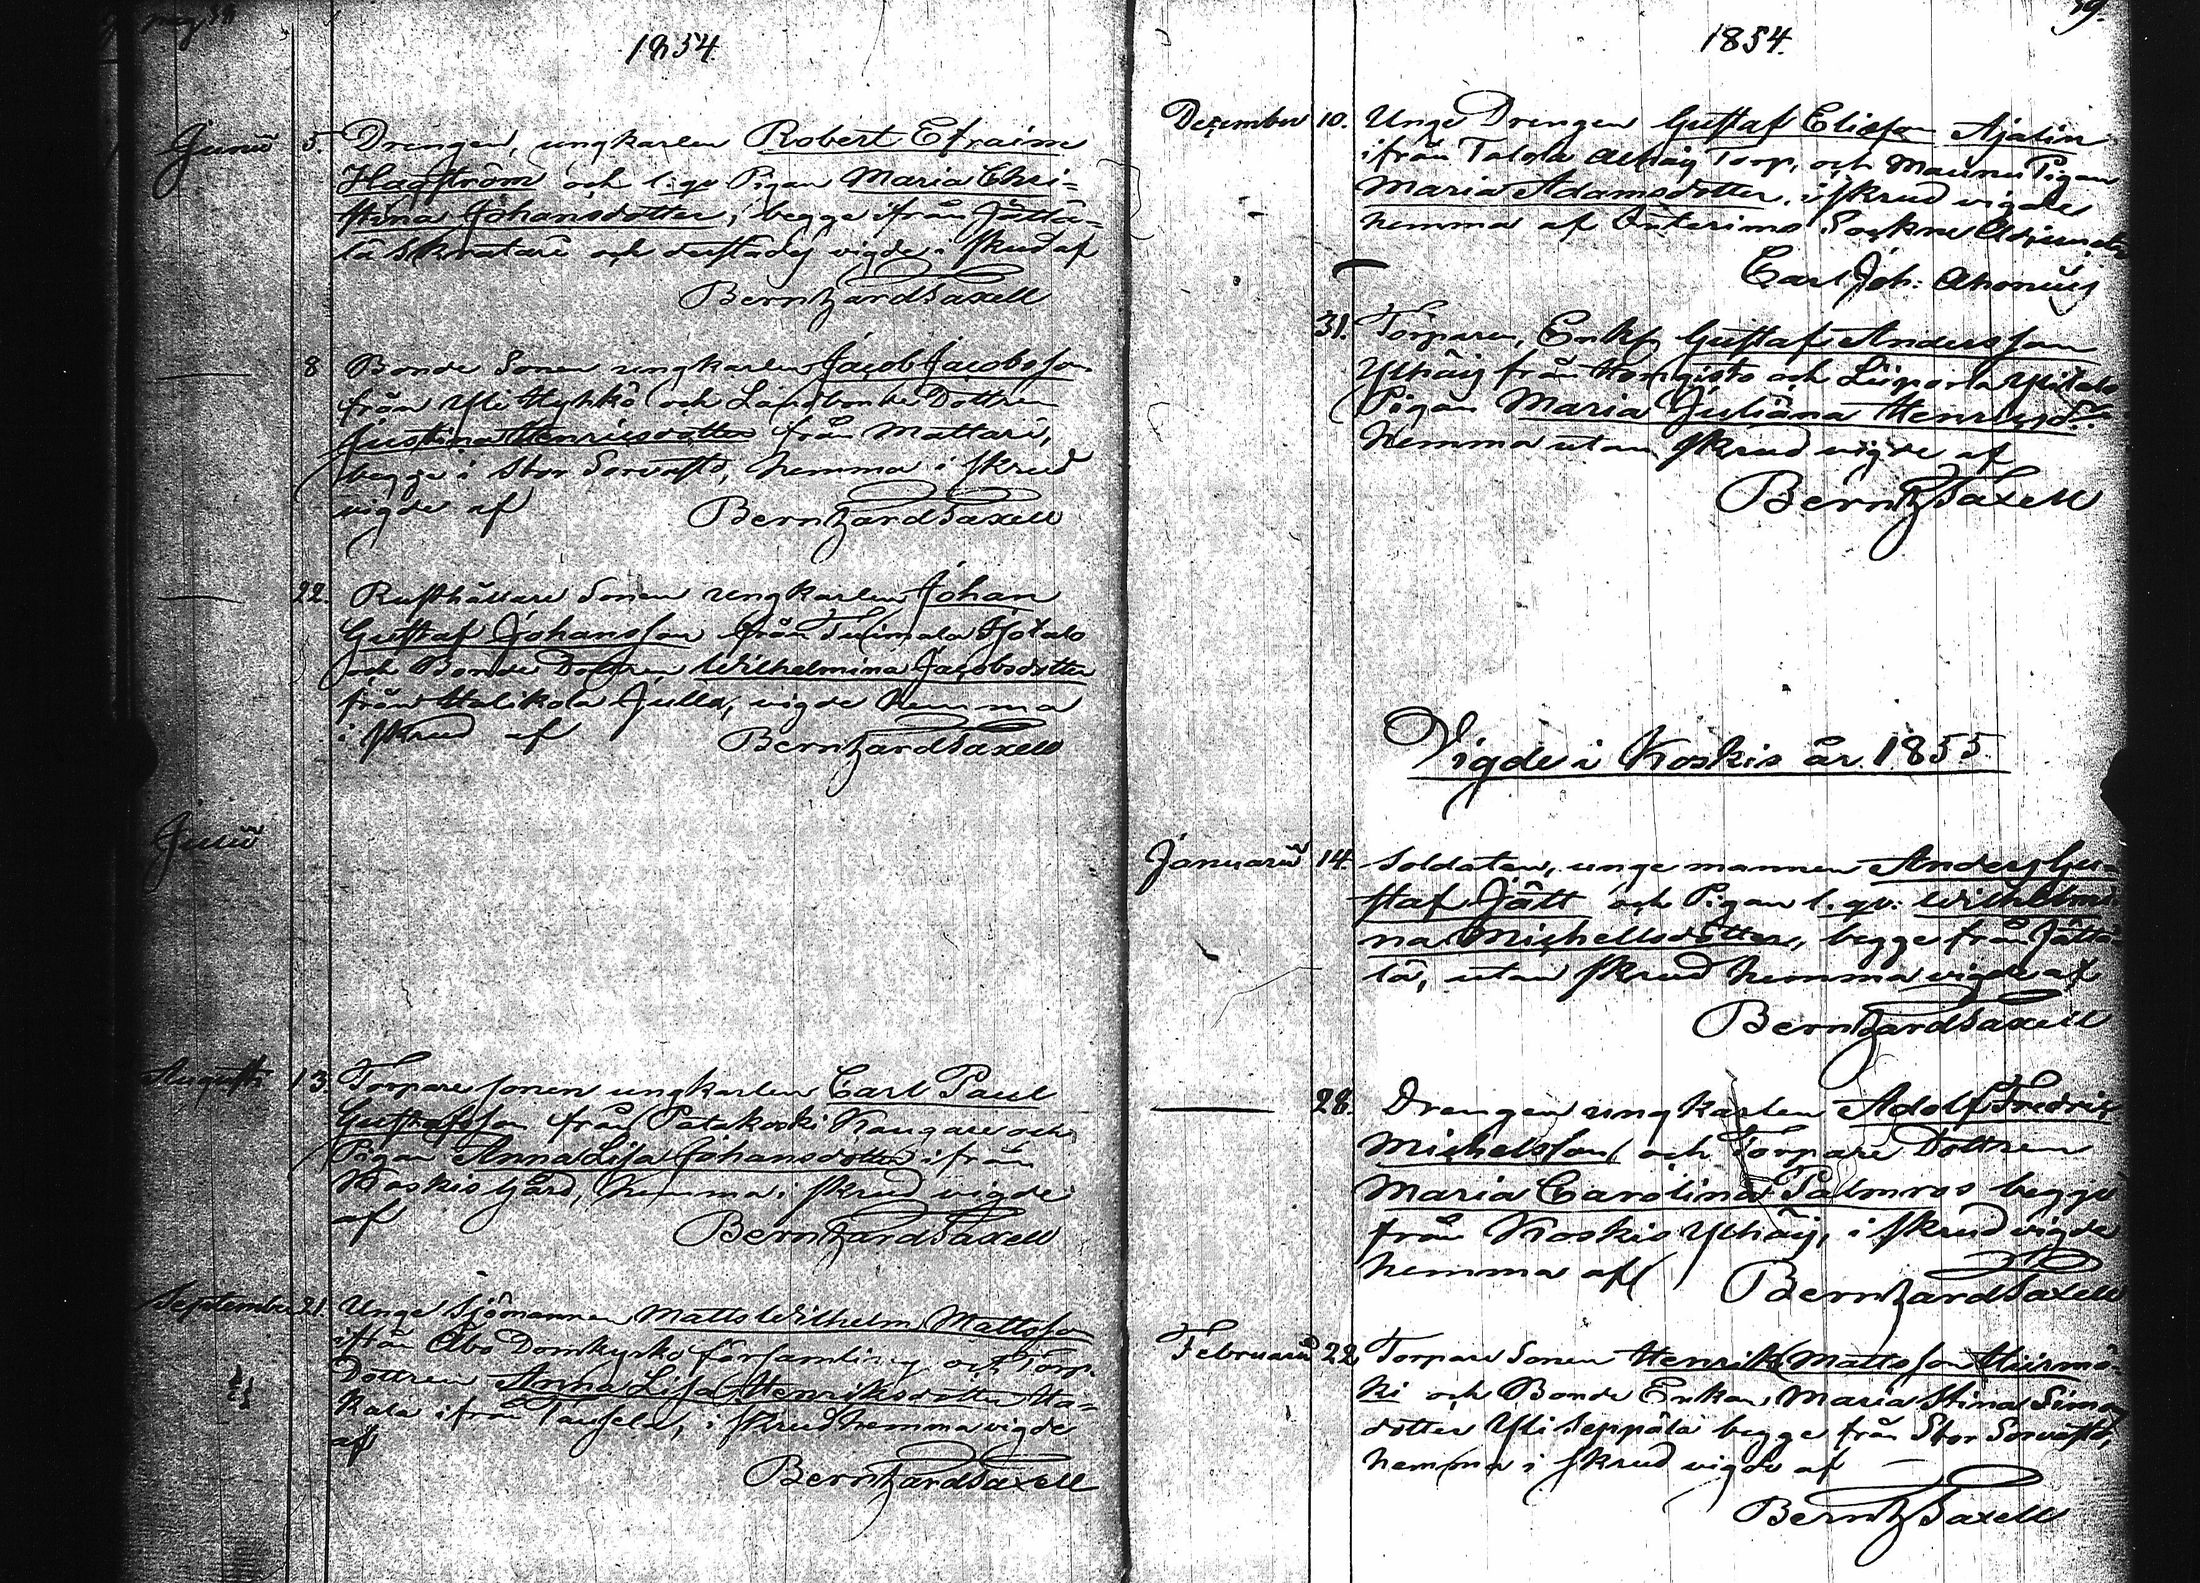 1854.
Junii 5. Drengen, ungkarlen Robert Efraim
Hagström och l: qv Pigan Maria Chri=
stina Johansdotter, begge ifrån Jättä=
lä Skratari och derstädes vigde i skrud af
Berntzard Saxell
8 Bonde Sonen ungkarlen Jacob Jacobsson
från Yli Hyhkö och Landbonde Dottren
Justina Henricsdotter från Mattari,
begge i Stor Sorvasto, hemma i skrud
vigde af Berntzard Saxell
22. Rusthållare Sonen ungkarlen Johan
Gustaf Johansson från Tuimala Isotalo
och Bonde Dottren Wilhelmina Jacobsdotter
från Halikola Julla, vigde hemma
i skrud af Berntzard Saxell
Julii
Augusti 13. Torpare sonen ungkarlen Carl Paul
Gustafsson från Patakoski Kangare och
Pigan Anna Lisa Johansdotter ifrån
Koskis Gård, hemma i skrud vigde
af Berntzard Saxell
September 21. Unge Sjömannen Matts Wilhelm Mattsson
ifrån Åbo Domkyrko församling och Torp.
Dottren Anna Lisa Henriksdotter Ha=
kala ifrån Tausela, i skrud hemma vigde
af
Berntzard Saxell
19.
1854.
December 10. Unge Drengen Gustaf Elisson Ajalin
ifrån Talola Torp, och Maunu Pigan
Maria Adamsdotter, i skrud vigde
hemma af Interims Sockne Adjuncten
Carl Joh: Ahonius
31. Torparen, Enkl. Gustaf Andersson
Ylhäij från Hongisto och Liipola Ylitalo
Pigan Maria Juliana Henricsd:r
hemma utan skrud vigde af
Berntz Saxell
Vigde i Koskis år 1855.
Januarii 14. Soldaten, unge mannen Anders Gu=
staf Jätt och Pigan l. qv: Wilhelmi=
na Michelsdotter, begge från Jättä=
lä, utan skrud hemma vigde af
Berntzard Saxell
28. Drengen ungkarlen Adolf Fredric
Michelsson och Torpare Dottren
Maria Carolina Palmros begge
från Koskis Ylhäij, i skrud vigde
hemma af Berntzard Saxell
Februarii 22. Torpare Sonen Henrik Mattsson Hiirmä=
ki och Bonde Enkan Maria Stina Simons
dotter Yli Seppälä begge från Stor Sorvasto,
hemma i skrud vigde af
Berntz Saxell